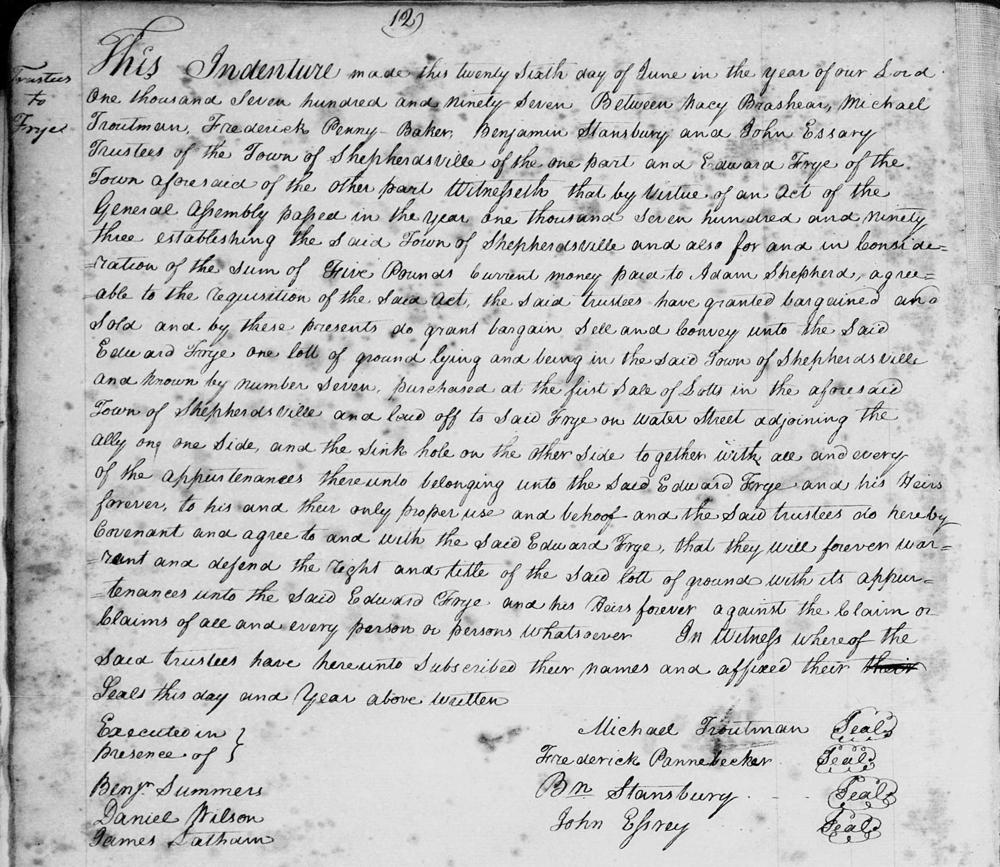 (12)
Trustees
to
Frye
This Indenture made this twenty Sixth day of June in the year of our Lord
One thousand Seven hundred and ninety Seven Between Nacy Brashear, Michael
Troutman, Frederick Penny-Baker, Benjamin Stansbury and John Essary
Trustees of the Town of Shepherdsville of the one part and Edward Frye of the
Town aforesaid of the other part Witnesseth that by Virtue of an Act of the
General Assembly passed in the year one thousand Seven hundred and ninety
three establishing the Said Town of Shepherdsville and also for and in Conside=
=ration of the Sum of Five Pounds Current money paid to Adam Shepherd, agree=
=able to the requisition of the Said Act, the Said trustees have granted bargained and
Sold and by these presents do grant bargain Sell and Convey unto the Said
Edward Frye one lott of ground lying and being in the Said Town of Shepherdsville
and known by number Seven, purchased at the first Sale of Lotts in the aforesaid
Town of Shepherdsville and laid off to Said Frye on Water Street adjoining the
ally on one Side, and the Sink hole on the other Side together with all and every
of the appurtenances thereunto belonging unto the Said Edward Frye and his Heirs
forever, to his and their only proper use and behoof and the Said trustees do hereby
Covenant and agree to and with the Said Edward Frye, that they will forever war=
=rant and defend the right and title of the Said lott of ground with its appur=
=tenances unto the Said Edward Frye and his Heirs forever against the Claim or
Claims of all and every person or persons Whatsoever In Witness whereof the
Said trustees have hereunto Subscribed their names and affixed their their
Seals this day and Year above written
Executed in }
presence of }
Michael Troutman Seal
Frederick Pannebecker Seal
Benjn. Summers
Bn Stansbury Seal
Daniel Wilson
John Essrey Seal
James Latham